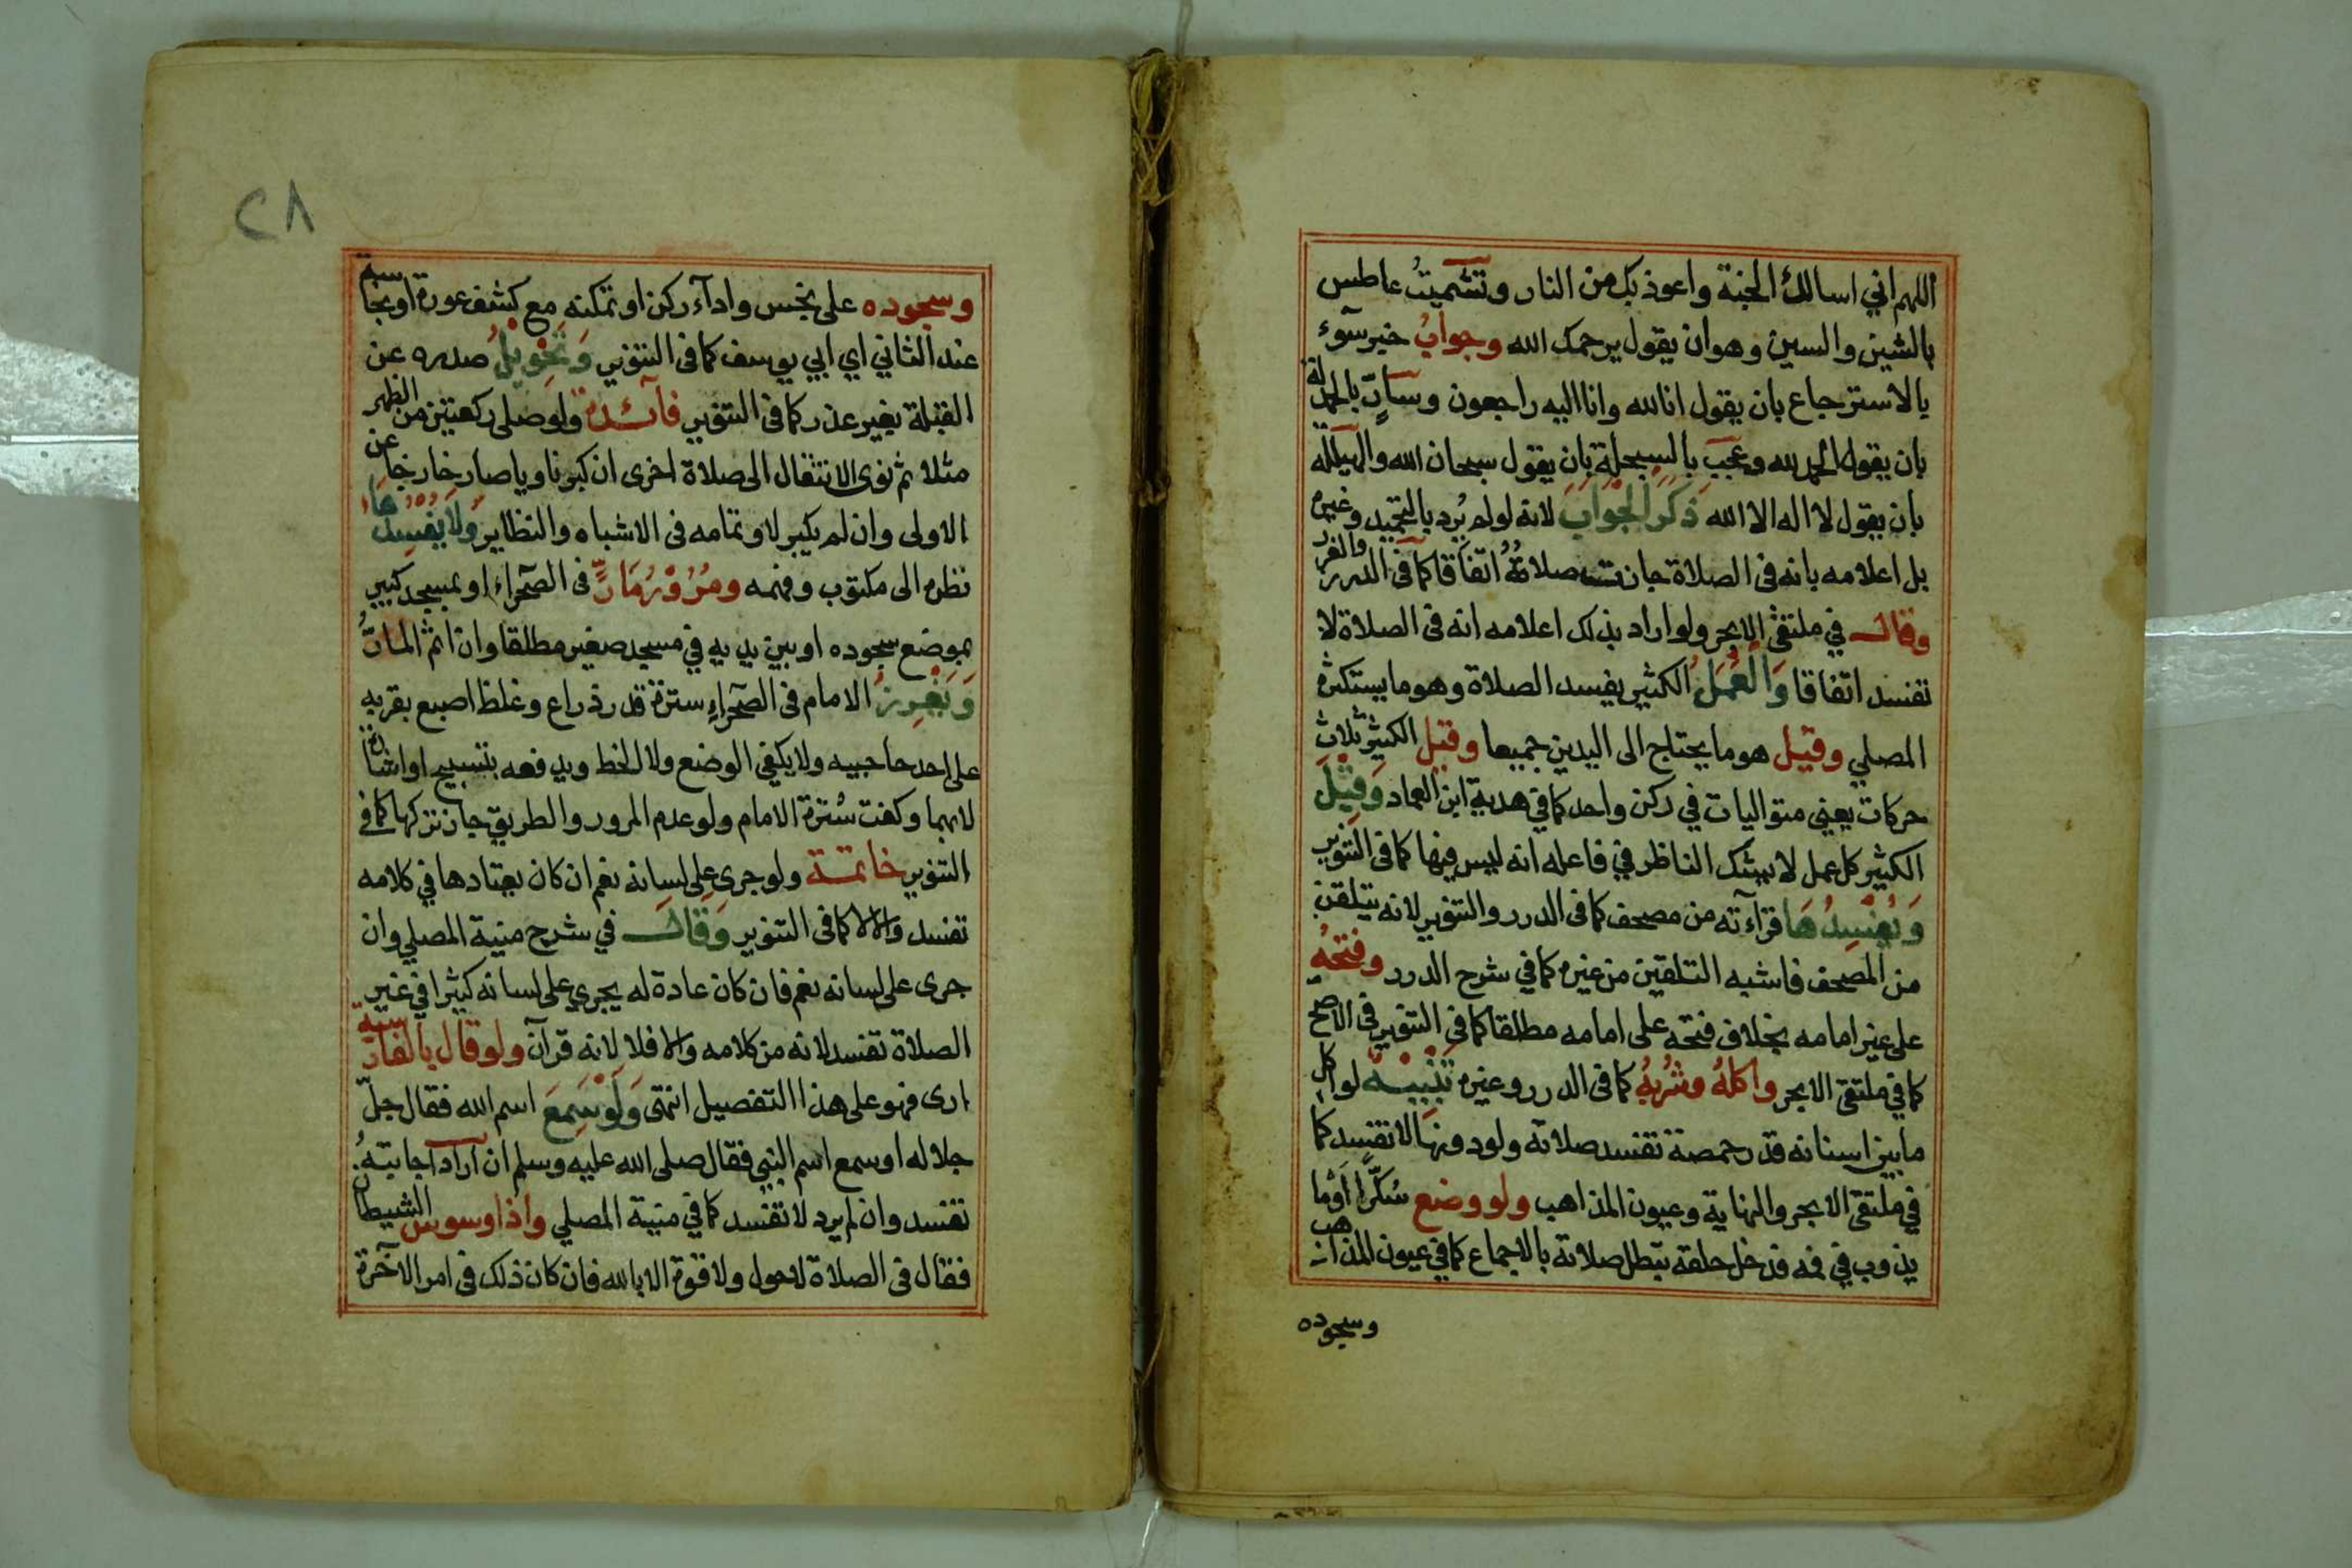 اللهم اني اسالك الجنة واعوذ بك من النار وتشميتُ عاطس
بالشين والسين وهو ان يقول يرحمك الله وجوابُ خبر سوء
بالاسترجاع بان يقول انا لله وانا اليه راجعون وسارّ بالحمدلة
بان يقول الحمد لله وعجب بالسبحلة بان يقول سبحان الله والهيللة
بان يقول لا اله الا الله ذَكَرَ الجَوَابَ لانه لو لم يُرد بالتحميد وغيره
بل اعلامه بانه في الصلاة جازت صلاتُهُ اتفاقا كما في الدرر والغرر
وقال في ملتقى الابحر ولو اراد بذلك اعلامه انه في الصلاة لا
تفسد اتفاقا وَالْعَمَلُ الكثير يفسد الصلاة وهو ما يستكثره
المصلي وقيل هو ما يحتاج الى اليدين جميعا وقيل الكثير ثلاث
حركات يعني متواليات في ركن واحد كما في هدية ابن العماد وَقِيْلَ
الكثير كل عمل لا يشك الناظر في فاعله انه ليس فيها كما في التنوير
وَيُفْسِدُهَا قراءته من مصحف كما في الدرر والتنوير لانه يتلقن
من المصحف فاشبه التلقين من غيره كما في شرح الدرر وفتحُهُ
على غير امامه بخلاف فتحه على امامه مطلقا كما في التنوير في الاصح
كما في ملتقى الابحر واكلهُ وشُربُهُ كما في الدرر وغيره تَنْبِيْهٌ لو اكل
ما بين اسنانه قدر حمصة تفسد صلاته ولو دونها لا تفسد كما
في ملتقى الابحر والنهاية وعيون المذاهب ولو وضع سُكّرا اوما
يذوب في فمه فدخل حلقه تبطل صلاته بالاجماع كما في عيون المذاهب
وسجوده
٢٨
وسجوده على نجس واداء ركن او تمكنه مع كشف عورة او نجاسة
عند الثاني اي ابي يوسف كما في التنوير وَتَحْوِيلُ صدره عن
القبلة بغير عذر كما في التنوير فائدة ولو صلى ركعتين من الظهر
مثلا ثم نوى الانتقال الى صلاة اخرى ان كبر ناويا صار خارجا عن
الاولى وان لم يكبر لا وتمامه في الاشباه والنظاير وَلَا يُفْسِدُهَا
نظره الى مكتوب وفهمه ومُرُوْرُ مَارٍّ في الصحراء او بمسجد كبير
بموضع سجوده او بين يديه في مسجد صغير مطلقا وان اثم المارُّ
وَيَغْرِزُ الامام في الصحراء سترة قدر ذراع وغلظ اصبع بقربه
على احد حاجبيه ولا يكفي الوضع ولا الخط ويدفعه بتسبيح او اشارة
لا بهما وكفت سُترة الامام ولو عدم المرور والطريق جاز تركها كما في
التنوير خاتمة ولو جرى على لسانه نعم ان كان يعتادها في كلامه
تفسد والا لا كما في التنوير وَقَالَ في شرح منية المصلي وان
جرى على لسانه نعم فان كان عادة له يجري على لسانه كثيرا في غير
الصلاة تفسد لانه من كلامه والا فلا لانه قرآن ولو قال بالفارسية
ارى فهو على هذا التفصيل انتهى وَلَوْ سَمِعَ اسم الله فقال جلّ
جلاله او سمع اسم النبي فقال صلى الله عليه وسلم ان اراد اجابته
تفسد وان لم يرد لا تفسد كما في منية المصلي واذا وسوس الشيطان
فقال في الصلاة لا حول ولا قوة الا بالله فان كان ذلك في امر الآخرة